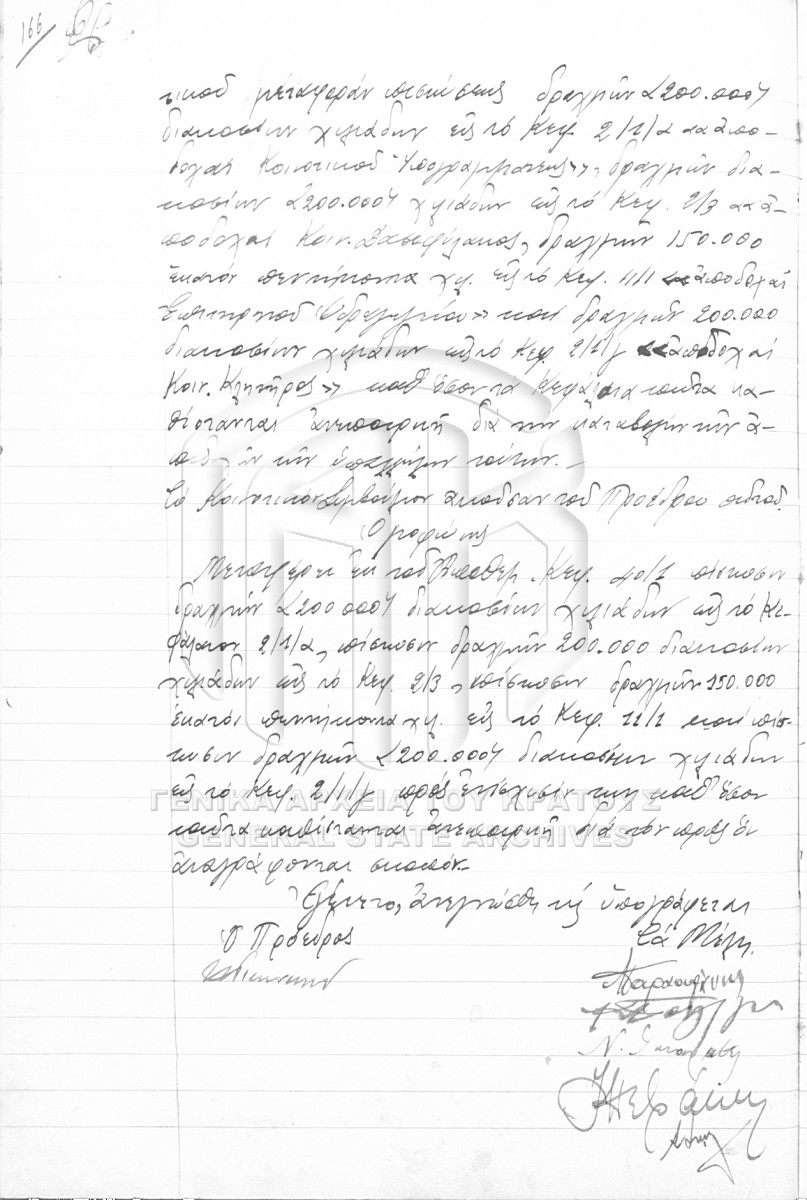 166
τικοῦ μεταφορὰν πιστώσεως δραχμῶν (200.000)
διακοσίων χιλιάδων εἰς τὸ Κεφ. 2/1/α «ἀπο-
δοχαί Κοινοτικοῦ Ὑπογραμματέως», δραχμῶν δια-
κοσίων (200.000) χιλιάδων εἰς τὸ Κεφ. 2/3 «ἀ-
ποδοχαί Κοιν. Δασοφύλακος, δραχμῶν 150.000
ἑκατόν πεντήκοντα χιλ. εἰς τὸ Κεφ. 11/1 «ἀποδοχαί
Ὑδραγωγείου» καί δραχμῶν 200.000
διακοσίων χιλιάδων εἰς τὸ Κεφ. 2/1/γ «ἀποδοχαί
Κοιν. Κλητῆρος» καθ' ὅσον τὰ Κεφάλαια ταῦτα κα-
θίστανται ἀνεπαρκῆ διὰ τὴν καταβολὴν τῶν ἀ-
ποδοχῶν τῶν ὑπαλλήλων τούτων.-
Τὸ Κοινοτικόν Συμβούλιον ἀκοῦσαν τοῦ Προέδρου
Ὁμοφώνως
Μεταφέρει ἐκ τοῦ Ἀποθεμ. Κεφ. 40/1 πίστωσιν
δραχμῶν (200.000) διακοσίων χιλιάδων εἰς τὸ Κε-
φάλαιον 2/1/α, πίστωσιν δραχμῶν 200.000 διακοσίων
χιλιάδων εἰς τὸ Κεφ. 2/3, πίστωσιν δραχμῶν 150.000
ἑκατόν πεντήκοντα χιλ. εἰς τὸ Κεφ. 11/1 καί πίσ-
τωσιν δραχμῶν (200.000) διακοσίων χιλιάδων
εἰς τὸ Κεφ. 2/1/γ πρὸς ἐνίσχυσίν των καθ' ὅσον
ταῦτα καθίστανται ἀνεπαρκῆ διὰ τὸν πρὸς ὃν
ἀναγράφονται σκοπόν.-
Ἐγένετο, ἀνεγνώσθη καί ὑπογράφεται
Ὁ Πρόεδρος Τὰ Μέλη.
Ν.
ΓΕΝΙΚΑ ΑΡΧΕΙΑ ΤΟΥ ΚΡΑΤΟΥΣ
GENERAL STATE ARCHIVES